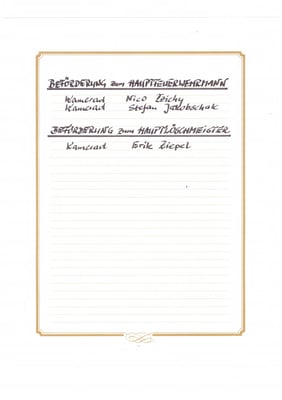 BEFÖRDERUNG zum HAUPTFEUERWEHRMANN
Kamerad Nico Zeichy
Kamerad Stefan Jakobschak
BEFÖRDERUNG zum HAUPTLÖSCHMEISTER
Kamerad Erik Ziepel